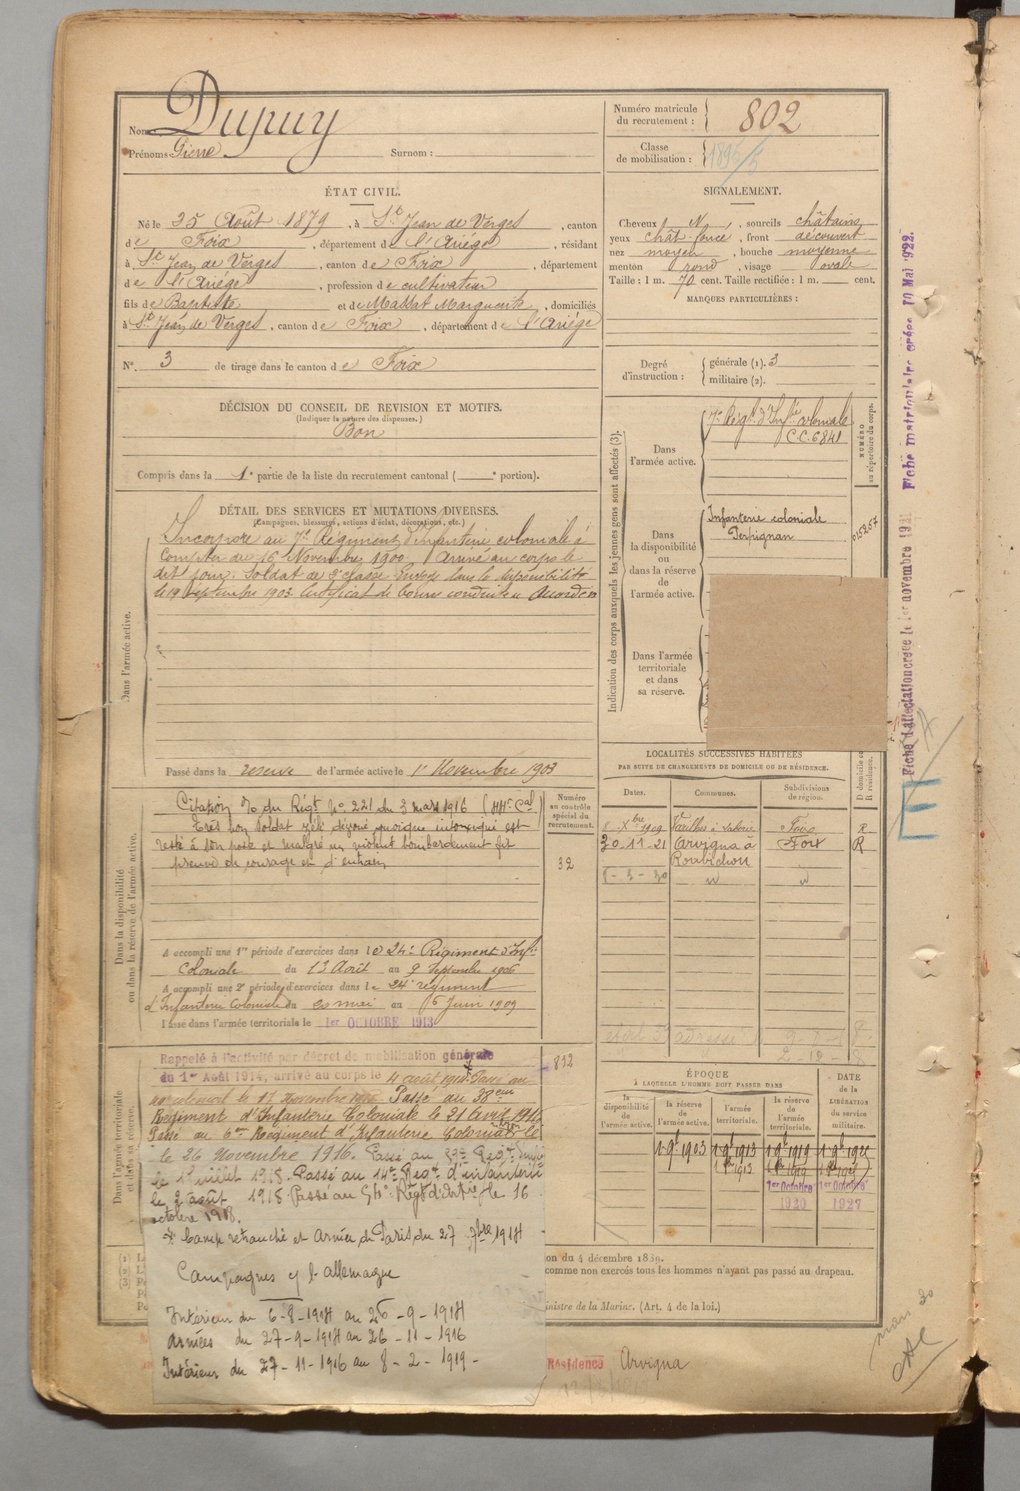 Nom: Dupuy
Prénoms: Pierre Surnom:
Numéro matricule du recrutement: 802
Classe de mobilisation: 1896/5
ÉTAT CIVIL.
Né le 25 Août 1879, à St Jean de Verges, canton
de Foix, département de l'Ariège, résidant
à St Jean de Verges, canton de Foix, département
de l'Ariège, profession de cultivateur
fils de Baptiste et de Massat Marguerite, domiciliés
à St Jean de Verges, canton de Foix, département de l'Ariège
N° 3 de tirage dans le canton de Foix
SIGNALEMENT.
Cheveux N, sourcils châtains
yeux chât. foncé, front découvert
nez moyen, bouche moyenne
menton rond, visage ovale
Taille: 1 m. 70 cent. Taille rectifiée: 1 m. cent.
MARQUES PARTICULIÈRES:
Degré d'instruction: générale (1). 3
militaire (2).
DÉCISION DU CONSEIL DE REVISION ET MOTIFS.
(Indiquer la nature des dispenses.)
Bon
Compris dans la 1e partie de la liste du recrutement cantonal ( e portion).
DÉTAIL DES SERVICES ET MUTATIONS DIVERSES.
(Campagnes, blessures, actions d'éclat, décorations, etc.)
Dans l'armée active.
Incorporé au 7e Régiment d'Infanterie coloniale à
compter du 16 Novembre 1900. Arrivé au corps le
dit jour. Soldat de 2e classe. Envoyé dans la disponibilité
le 19 Septembre 1903. Certificat de bonne conduite Accordé
Passé dans la réserve de l'armée active le 1er Novembre 1903
Indication des corps auxquels les jeunes gens sont affectés (3).
Dans l'armée active.
7e Régt d'Infie coloniale
C.C. 6841
NUMÉRO au répertoire du corps.
Dans la disponibilité ou dans la réserve de l'armée active.
Infanterie coloniale
Perpignan
015257
Dans l'armée territoriale et dans sa réserve.
Dans la disponibilité ou dans la réserve de l'armée active.
Citation O. du Régt No. 221 du 3 mars 1916
Très bon soldat zélé dévoué quoique intoxiqué est
resté à son poste et malgré un violent bombardement fit
preuve de courage et d'entrain
Numéro au contrôle spécial du recrutement.
32
A accompli une 1re période d'exercices dans le 24e Régiment d'Infie
Coloniale du 13 Août au 9 Septembre 1906
A accompli une 2e période d'exercices dans le 24e régiment
d'Infanterie Coloniale du 20 mai au 5 Juin 1909
Passé dans l'armée territoriale le 1er OCTOBRE 1913
LOCALITÉS SUCCESSIVES HABITÉES
PAR SUITE DE CHANGEMENTS DE DOMICILE OU DE RÉSIDENCE.
Dates. Communes. Subdivisions de région. D domicile ou R résidence.
Xbre 1909 Foix R
20-11-21 Arvigna à Roubichou Foix R
Dans l'armée territoriale et dans sa réserve.
Rappelé à l'activité par décret de mobilisation générale
du 1er Août 1914, arrivé au corps le 4 août 1914. Passé au
Passé au 38eme
Régiment d'Infanterie Coloniale le 21 Avril
Passé au 6me Régiment d'Infanterie Coloniale le
le 26 Novembre 1916. Passé au
le 1er juillet 1918. Passé au 14e Régt d'infanterie
le 2 août 1918 Passé au le 16
octobre 1918.
Camp retranché et Armée de Paris du 27 7bre 1914
Campagnes c/ l'allemagne
Intérieur du 6-8-1914 au 26-9-1914
Armées du 27-9-1914 au 26-11-1916
Intérieur du 27-11-1916 au 8-2-1919-
812
ÉPOQUE
À LAQUELLE L'HOMME DOIT PASSER DANS
la disponibilité de l'armée active. la réserve de l'armée active. l'armée territoriale. la réserve de l'armée territoriale.
DATE de la LIBÉRATION du service militaire.
1 9b 1903 1 9b 1913 1 9b 1919
1er Octobre 1920 1er Octobre 1927
on du 4 décembre 1889.
comme non exercés tous les hommes n'ayant pas passé au drapeau.
inistre de la Marine. (Art. 4 de la loi.)
Résidence Arvigna
Fiche d'affectation créée le 1er novembre Fiche matriculaire créée 10 Mai 1922.